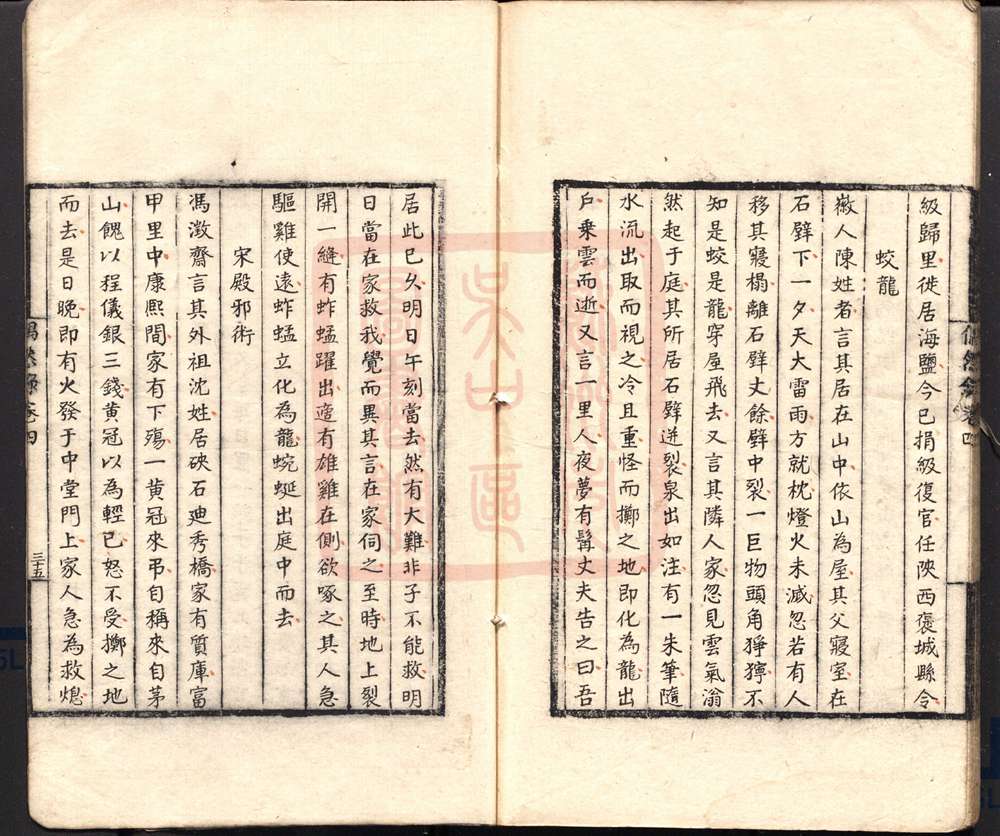 級歸里徙居海鹽今已捐級復官任陝西褒城縣令
蛟龍
徽人陳姓者言其居在山中依山為屋其父寢室在
石壁下一夕天大雷雨方就枕燈火未滅忽若有人
移其寢榻離石壁丈餘壁中裂一巨物頭角猙獰不
知是蛟是龍穿屋飛去又言其隣人家忽見雲氣滃
然起于庭其所居石壁迸裂泉出如注有一朱筆隨
水流出取而視之冷且重怪而擲之地即化為龍出
戶乗雲而逝又言一里人夜夢有髯丈夫告之曰吾
居此已久明日午刻當去然有大難非子不能救明
日當在家救我覺而異其言在家伺之至時地上裂
開一縫有蚱蜢躍出適有雄雞在側欲啄之其人急
驅雞使遠蚱蜢立化為龍蜿蜒出庭中而去
宋殿邪術
馮澂齋言其外祖沈姓居硤石廸秀橋家有質庫富
甲里中康熙間家有下殤一黄冠來弔自稱來自茅
山餽以程儀銀三錢黄冠以為輕己怒不受擲之地
而去是日晚即有火發于中堂門上家人急為救熄
偶然錄卷四
三十五